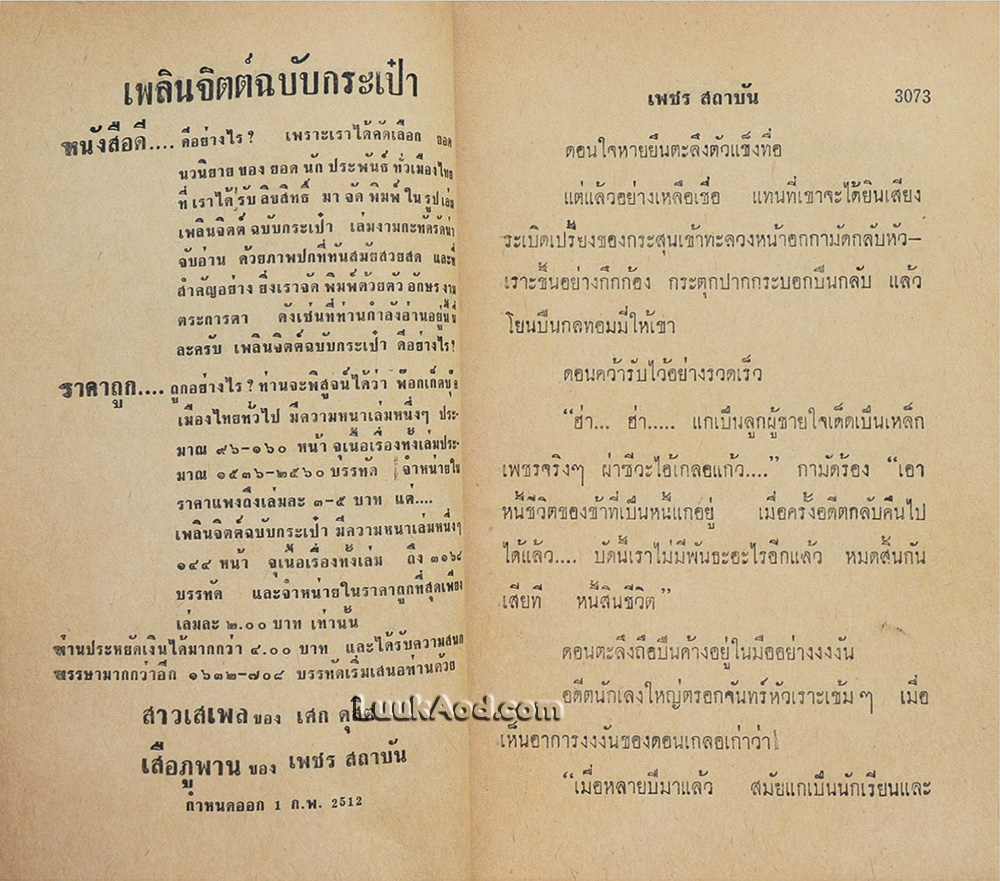 เพลินจิตต์ฉบับกระเป๋า
หนังสือดี.... ดีอย่างไร? เพราะเราได้คัดเลือก ยอด
นวนิยาย ของ ยอด นัก ประพันธ์ ทั่วเมืองไทย
ที่ เราได้ รับ ลิขสิทธิ์ มา จัด พิมพ์ ใน รูป เล่ม
เพลินจิตต์ ฉบับกระเป๋า เล่มงามกะทัดรัดน่า
จับอ่าน ด้วยภาพปกที่ทันสมัยสวยสด และที่
สำคัญอย่าง ยิ่งเราจัด พิมพ์ด้วยตัว อักษร งาม
ตระการตา ดังเช่นที่ท่านกำลังอ่านอยู่นี้
ละครับ เพลินจิตต์ฉบับกระเป๋า ดีอย่างไร?
ราคาถูก.... ถูกอย่างไร? ท่านจะพิสูจน์ได้ว่า พ๊อกเก็ตบุ๊ค
เมืองไทยทั่วไป มีความหนาเล่มหนึ่งๆ ประ-
มาณ ๙๖-๑๖๐ หน้า จุเนื้อเรื่องทั้งเล่มประ-
มาณ ๑๕๓๖-๒๕๖๐ บรรทัด จำหน่ายใน
ราคาแพงถึงเล่มละ ๓-๕ บาท แต่....
เพลินจิตต์ฉบับกระเป๋า มีความหนาเล่มหนึ่งๆ
๑๔๔ หน้า จุเนื้อเรื่องทั้งเล่ม ถึง ๓๑๖๘
บรรทัด และจำหน่ายในราคาถูกที่สุดเพียง
เล่มละ ๒.๐๐ บาท เท่านั้น
ท่านประหยัดเงินได้มากกว่า ๔.๐๐ บาท และได้รับความสนุก
หรรษามากกว่าอีก ๑๖๓๒-๗๐๘ บรรทัดเริ่มเสนอท่านด้วย
สาวเสเพล ของ เศก ดุสิต
เสือภูพาน ของ เพชร สถาบัน
กำหนดออก 1 ก.พ. 2512
LuukAod.com
เพชร สถาบัน 3073
ดอนใจหายยืนตะลึงตัวแข็งทื่อ
แต่แล้วอย่างเหลือเชื่อ แทนที่เขาจะได้ยินเสียง
ระเบิดเปรี้ยงของกระสุนเข้าทะลวงหน้าอกกามัดกลับหัว-
เราะขึ้นอย่างกึกก้อง กระตุกปากกระบอกปืนกลับ แล้ว
โยนปืนกลทอมมี่ให้เขา
ดอนคว้ารับไว้อย่างรวดเร็ว
“ฮ่า... ฮ่า..... แกเป็นลูกผู้ชายใจเด็ดเป็นเหล็ก
เพชรจริงๆ ผ่าซีวะไอ้เกลอแก้ว....” กามัดร้อง “เอา
หนี้ชีวิตของข้าที่เป็นหนี้แกอยู่ เมื่อครั้งอดีตกลับคืนไป
ได้แล้ว.... บัดนี้เราไม่มีพันธะอะไรอีกแล้ว หมดสิ้นกัน
เสียที หนี้สินชีวิต”
ดอนตะลึงถือปืนค้างอยู่ในมืออย่างงงงัน
อดีตนักเลงใหญ่ตรอกจันทร์หัวเราะเข้มๆ เมื่อ
เห็นอาการงงงันของดอนเกลอเก่าว่า
“เมื่อหลายปีมาแล้ว สมัยแกเป็นนักเรียนและ